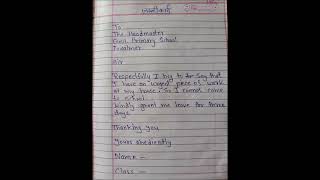 To
The Headmaster
Govt. Primary School
Sir
Respectfully I beg to say that
I have an urgent piece of work
at my house. So I cannot come
to school.
Kindly grant me leave for three
days
Thanking you
Yours obediently
Name –
Class –